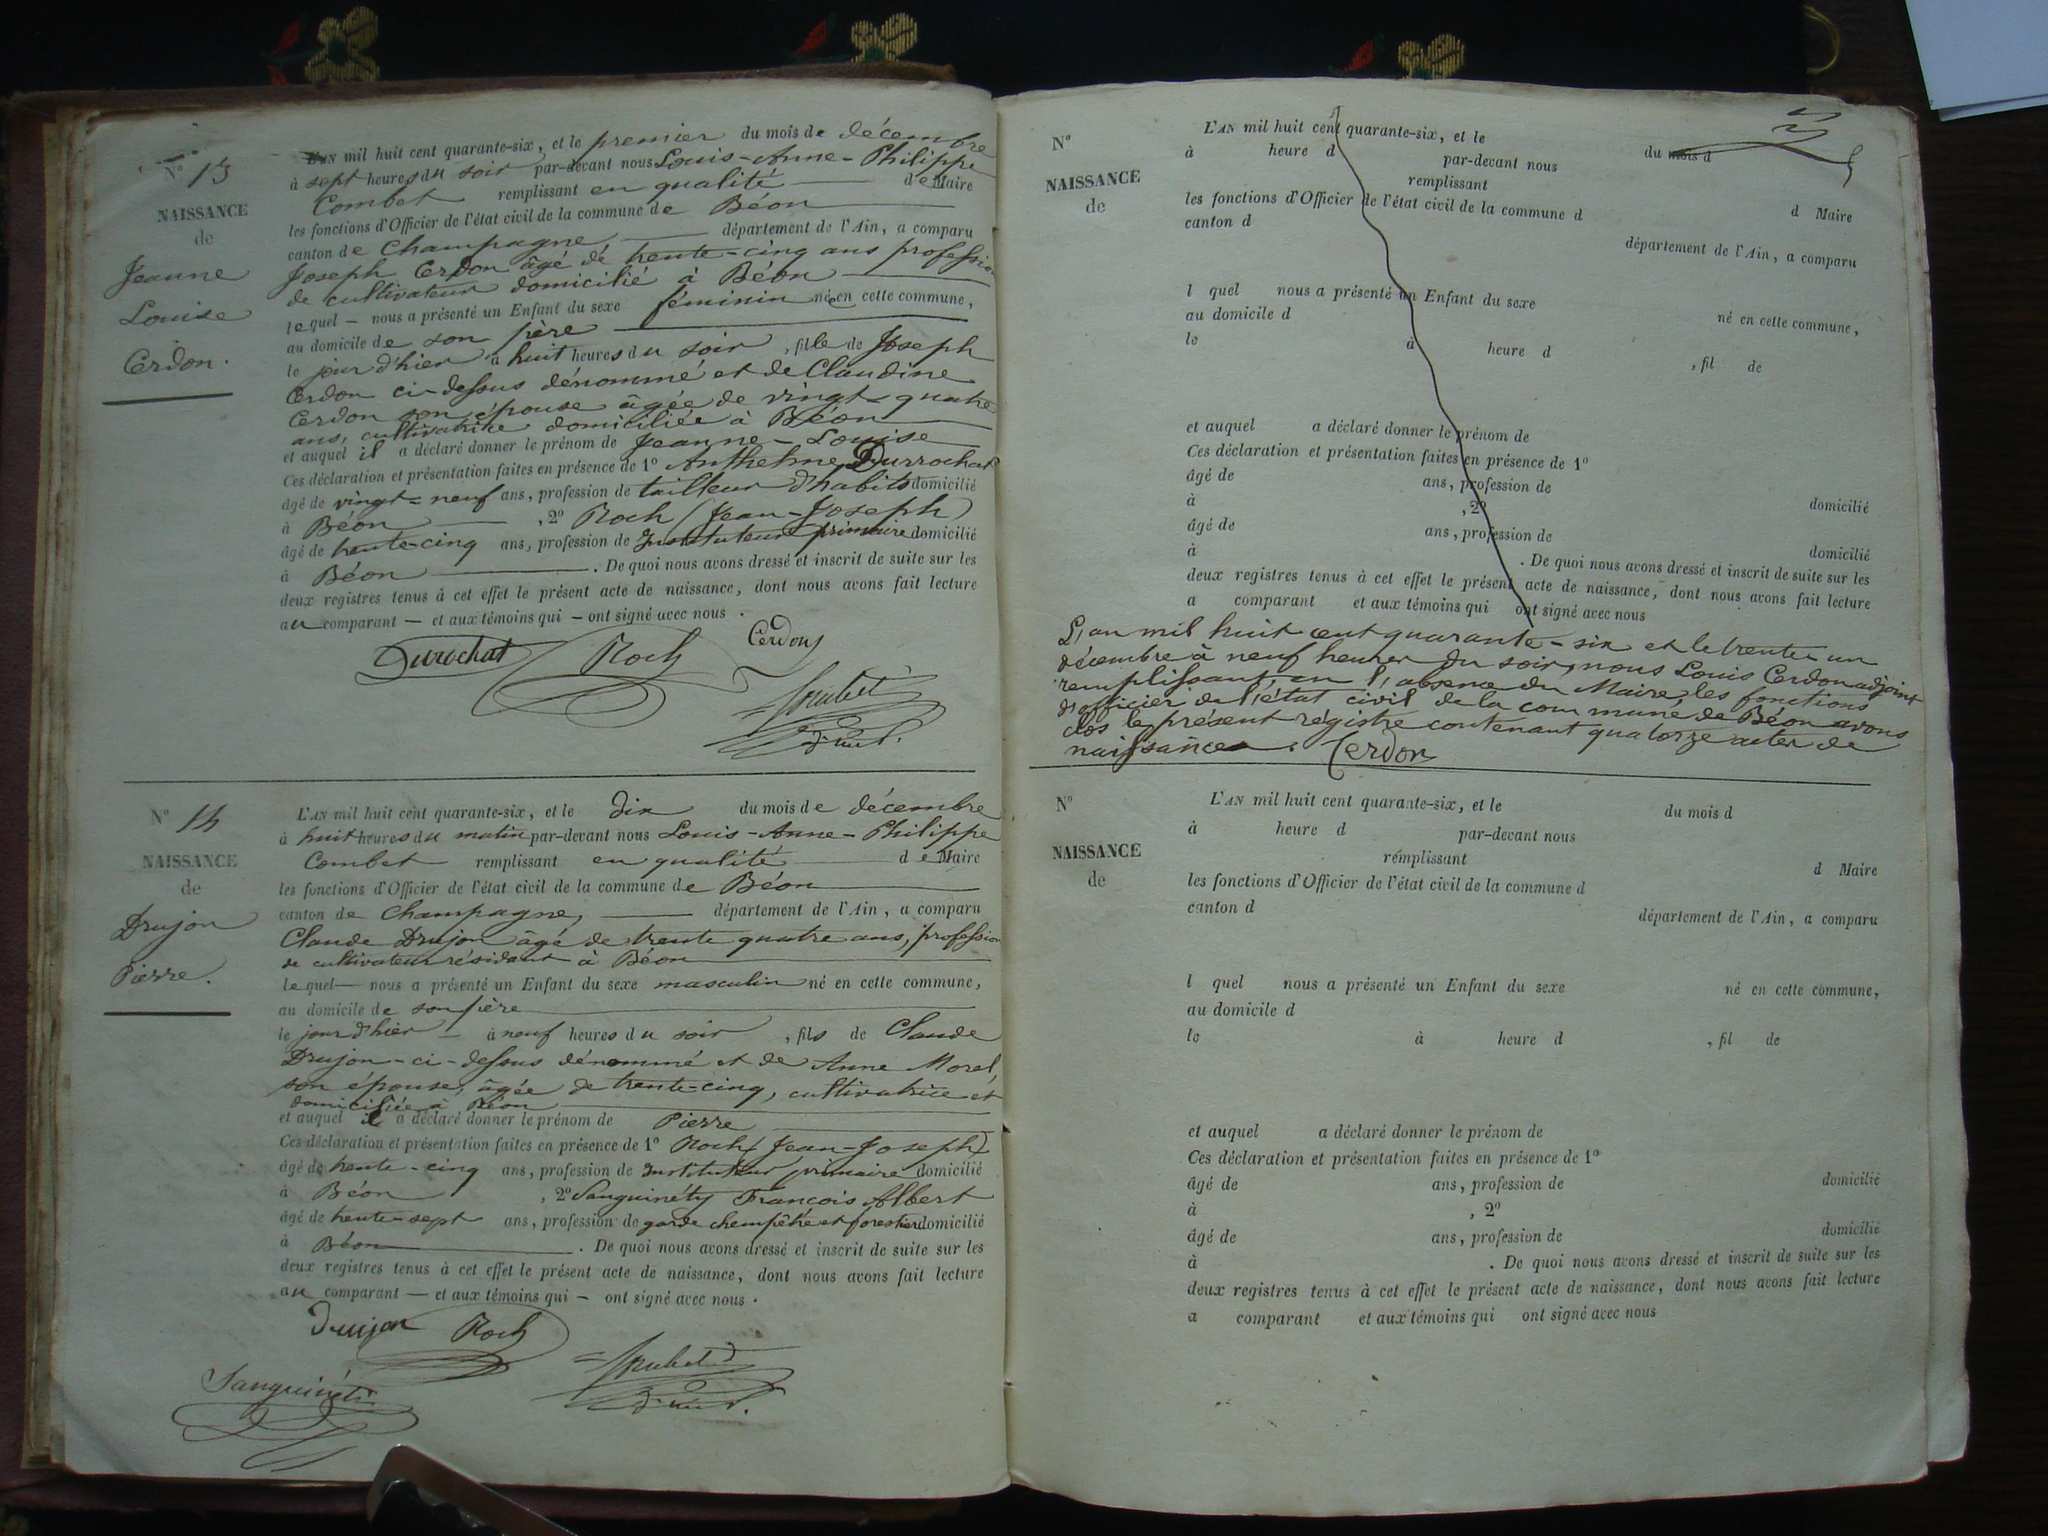 N° 13
NAISSANCE
de
Jeanne
Louise
Cerdon.
L'AN mil huit cent quarante-six, et le premier du mois de décembre
à sept heures du soir par-devant nous Louis-Anne-Philippe
Combet remplissant en qualité de Maire
les fonctions d'Officier de l'état civil de la commune de Béon
canton de Champagne département de l'Ain, a comparu
Joseph Cerdon âgé de trente-cinq ans profession
de cultivateur domicilié à Béon
lequel — nous a présenté un Enfant du sexe féminin née en cette commune,
au domicile de son père
le jour d'hier à huit heures du soir, fille de Joseph
Cerdon ci-dessus dénommé et de Claudine
Cerdon son épouse âgée de vingt-quatre
ans, cultivatrice domiciliée à Béon
et auquel il a déclaré donner le prénom de Jeanne-Louise
Ces déclaration et présentation faites en présence de 1° Anthelme Durrochat
âgé de vingt-neuf ans, profession de tailleur d'habits domicilié
à Béon , 2° Roch (Jean-Joseph)
âgé de trente-cinq ans, profession de Instituteur primaire domicilié
à Béon . De quoi nous avons dressé et inscrit de suite sur les
deux registres tenus à cet effet le présent acte de naissance, dont nous avons fait lecture
au comparant — et aux témoins qui — ont signé avec nous.
Durochat Roch Cerdon
N° 14
NAISSANCE
de
Drujon
Pierre.
L'AN mil huit cent quarante-six, et le dix du mois de décembre
à huit heures du matin par-devant nous Louis-Anne-Philippe
Combet remplissant en qualité de Maire
les fonctions d'Officier de l'état civil de la commune de Béon
canton de Champagne, département de l'Ain, a comparu
Claude Drujon âgé de trente quatre ans, profession
de cultivateur résidant à Béon
lequel — nous a présenté un Enfant du sexe masculin né en cette commune,
au domicile de son père
le jour d'hier — à neuf heures du soir, fils de Claude
Drujon-ci-dessus dénommé et de Anne Morel,
son épouse, âgée de trente-cinq, cultivatrice et
domiciliée à Béon
et auquel il a déclaré donner le prénom de Pierre
Ces déclaration et présentation faites en présence de 1° Roch (Jean-Joseph)
âgé de trente-cinq ans, profession de Instituteur primaire domicilié
à Béon , 2° Sanguinéty François Albert
âgé de trente-sept ans, profession de garde champêtre et forestier domicilié
à Béon . De quoi nous avons dressé et inscrit de suite sur les
deux registres tenus à cet effet le présent acte de naissance, dont nous avons fait lecture
au comparant — et aux témoins qui — ont signé avec nous.
Drujon Roch
Sanguinéti
N°
NAISSANCE
de
L'AN mil huit cent quarante-six, et le du mois d
à heure d par-devant nous
remplissant d Maire
les fonctions d'Officier de l'état civil de la commune d
canton d département de l'Ain, a comparu
l quel nous a présenté un Enfant du sexe né en cette commune,
au domicile d
le à heure d , fil de
et auquel a déclaré donner le prénom de
Ces déclaration et présentation faites en présence de 1°
âgé de ans, profession de domicilié
à , 2°
âgé de ans, profession de domicilié
à . De quoi nous avons dressé et inscrit de suite sur les
deux registres tenus à cet effet le présent acte de naissance, dont nous avons fait lecture
a comparant et aux témoins qui ont signé avec nous
L'an mil huit cent quarante-six et le trente un
décembre à neuf heures du soir, nous Louis Cerdon adjoint
remplissant, en l'absence du Maire, les fonctions
d'officier de l'état civil de la commune de Béon avons
clos le présent régistre contenant quatorze actes de
naissances. Cerdon
N°
NAISSANCE
de
L'AN mil huit cent quarante-six, et le du mois d
à heure d par-devant nous
remplissant d Maire
les fonctions d'Officier de l'état civil de la commune d
canton d département de l'Ain, a comparu
l quel nous a présenté un Enfant du sexe né en cette commune,
au domicile d
le à heure d , fil de
et auquel a déclaré donner le prénom de
Ces déclaration et présentation faites en présence de 1°
âgé de ans, profession de domicilié
à , 2°
âgé de ans, profession de domicilié
à . De quoi nous avons dressé et inscrit de suite sur les
deux registres tenus à cet effet le présent acte de naissance, dont nous avons fait lecture
a comparant et aux témoins qui ont signé avec nous